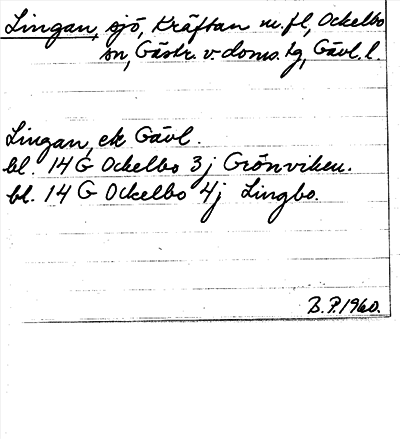 Lingan, sjö, Kräftan m.fl, Ockelbo
sn, Gästr. v. doms. lg, Gävl. l.
Lingan, ek Gävl.
bl. 14 G Ockelbo 3j Grönviken.
bl. 14 G Ockelbo 4j Lingbo.
B.P.1960.